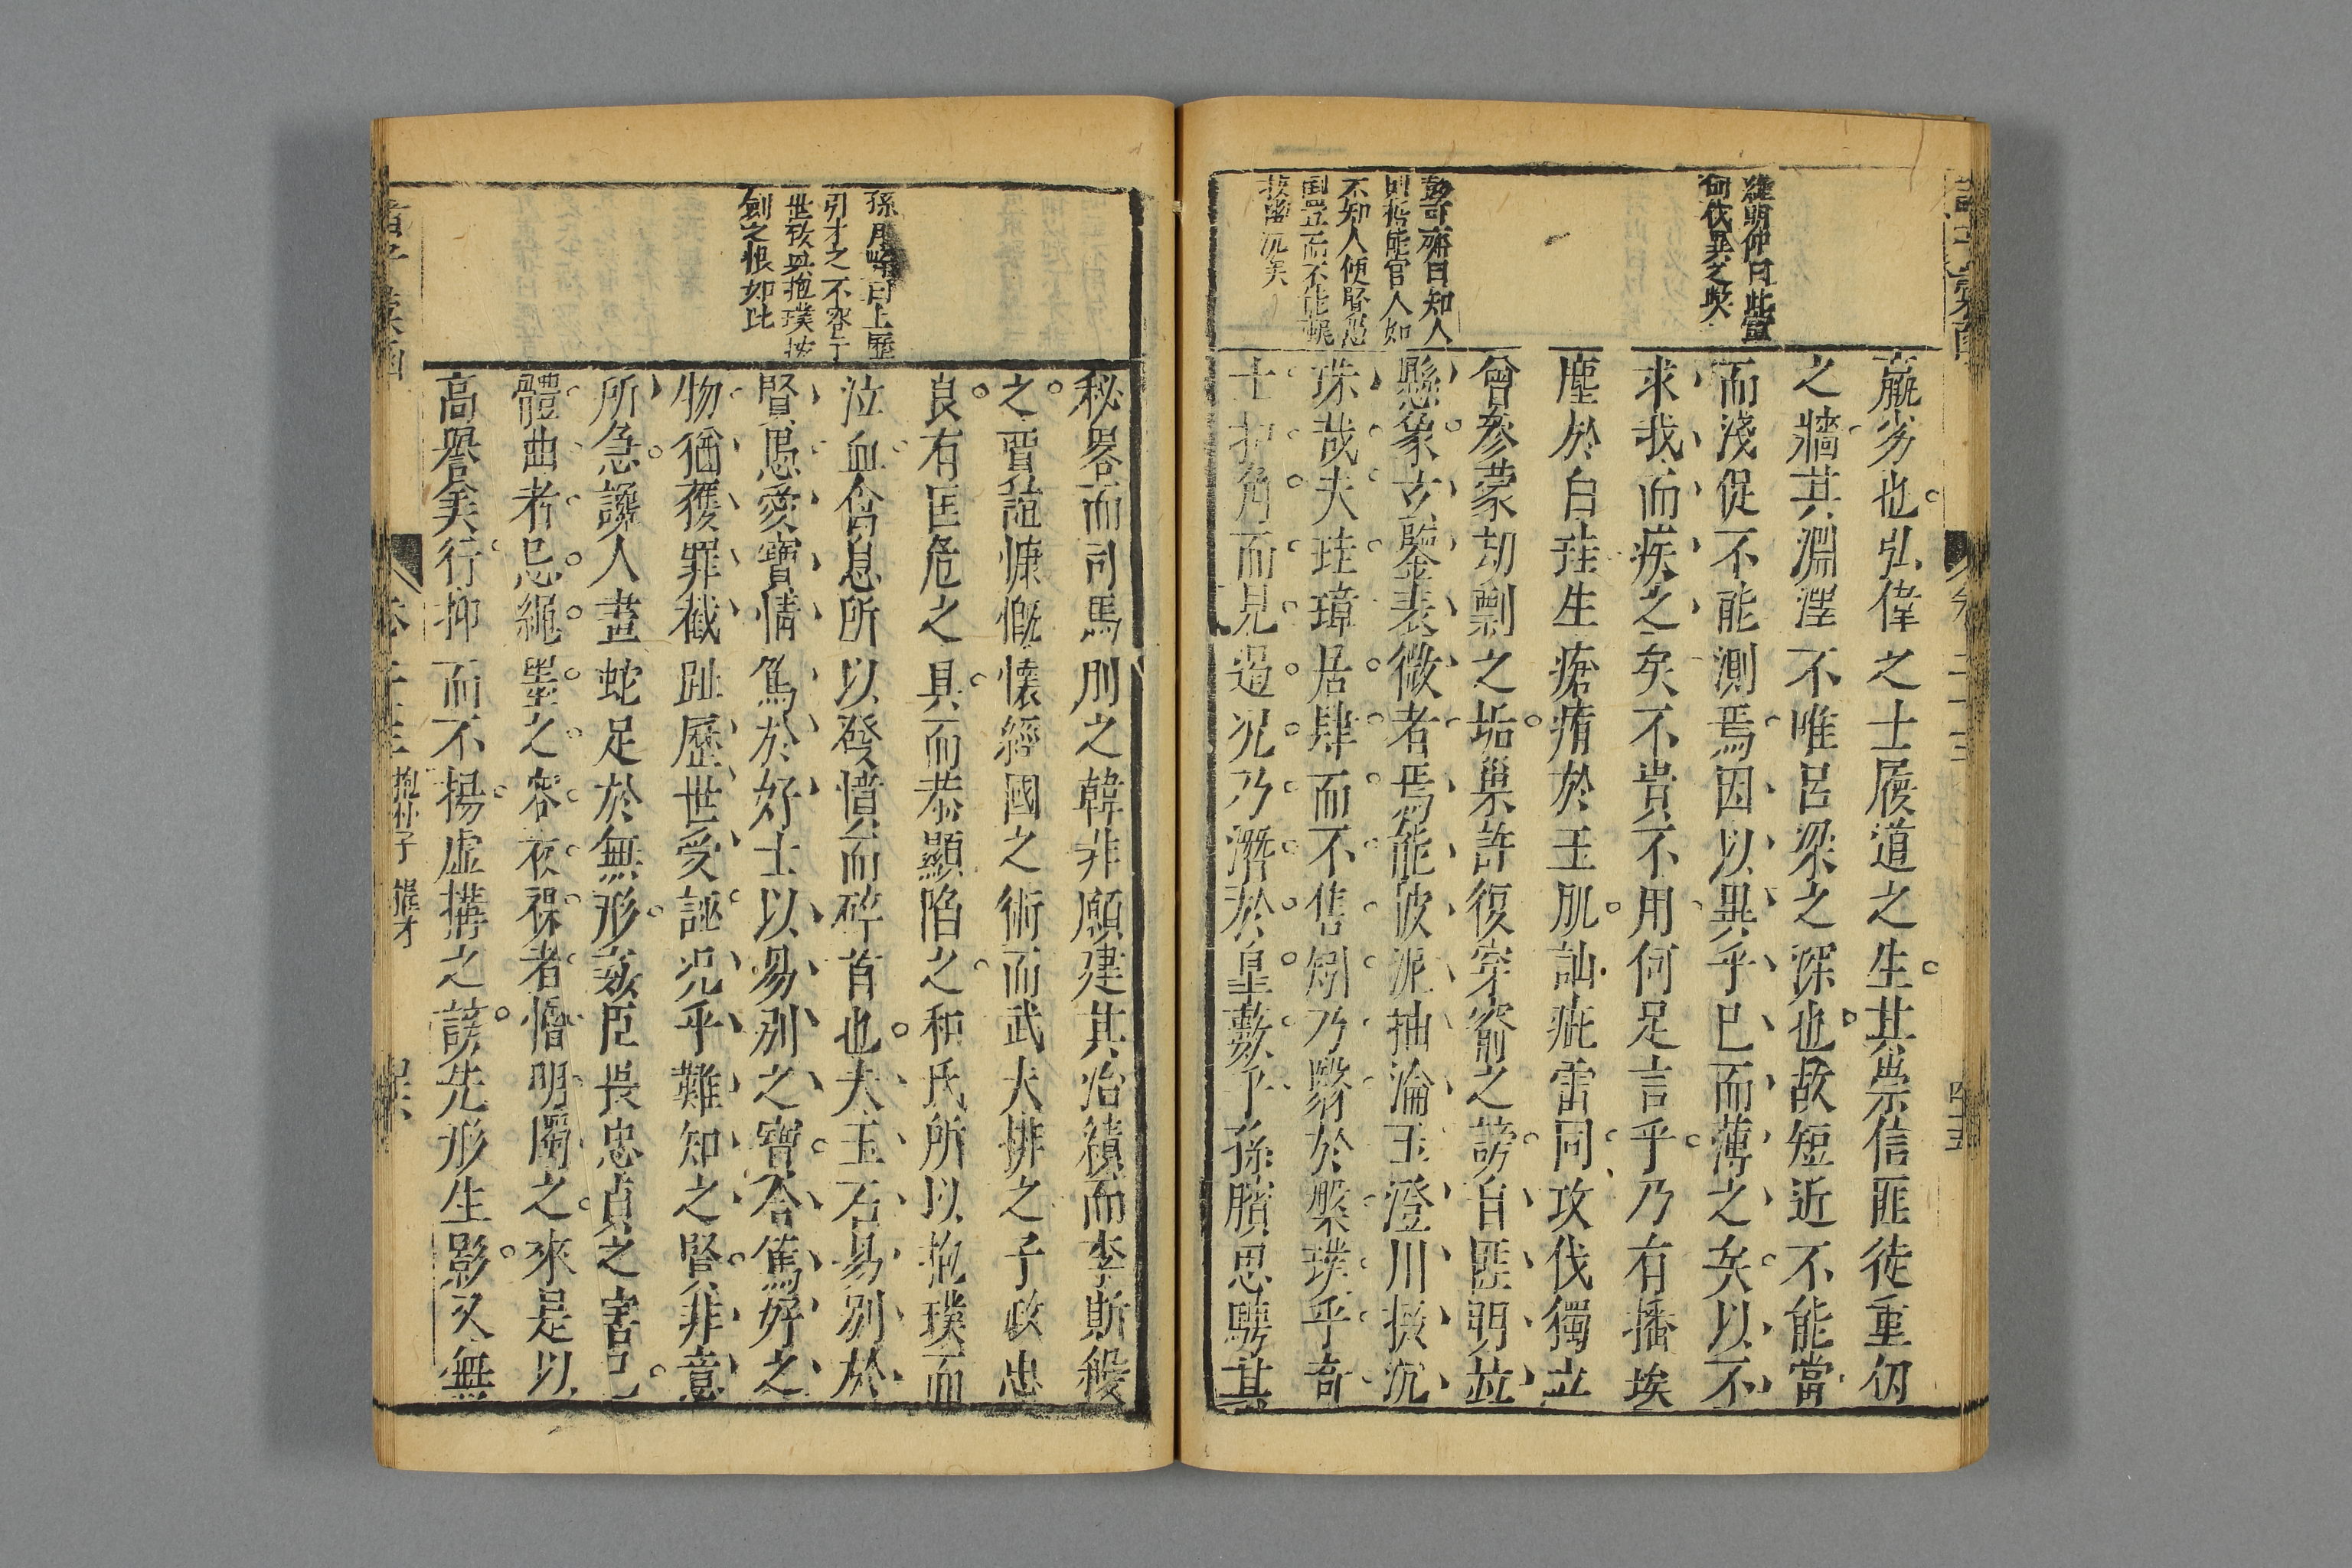 羅明仲曰此當
何伐異之與
彭可齋曰知人
則哲能官人如
不知人使賢愚
倒置而不能振
拔幽沉矣
羸劣也弘偉之士履道之生其崇信匪徒重仞
之牆其淵澤不唯呂梁之深也故短近不能當
而淺促不能測焉因以異乎已而薄之矣以不
求我而疾之矣不貴不用何足言乎乃有播埃
塵於白珪生瘡痏於玉肌訕疵雷同攻伐獨立
曾參蒙劫剽之垢巢許復穿窬之謗自匪明並
懸象玄鑒表微者焉能披泥抽淪玉澄川掇沉
珠哉夫珪璋居肆而不售矧乃翳於槃璞乎奇
士扣角而見遏况乃潛於皐藪乎孫臏思騁其
孫月峰曰上歷
引才之不容于
世致與抱璞按
劍之恨如此
秘畧而司馬刖之韓非願建其治績而李斯殺
之賈誼慷慨懷經國之術而武夫排之子政忠
良有匡危之具而恭顯陷之和氏所以抱璞而
泣血禽息所以發憤而碎首也夫玉石易別於
賢愚愛寶情篤於好士以易別之寶合篤好之
物猶獲罪截趾歷世受誣况乎難知之賢非意
所急讒人畫蛇足於無形姦臣畏忠貞之害已
體曲者忌繩墨之容夜裸者憎明燭之來是以
高譽美行抑而不揚虛搆之謗先形生影又無
抱朴子 擢才